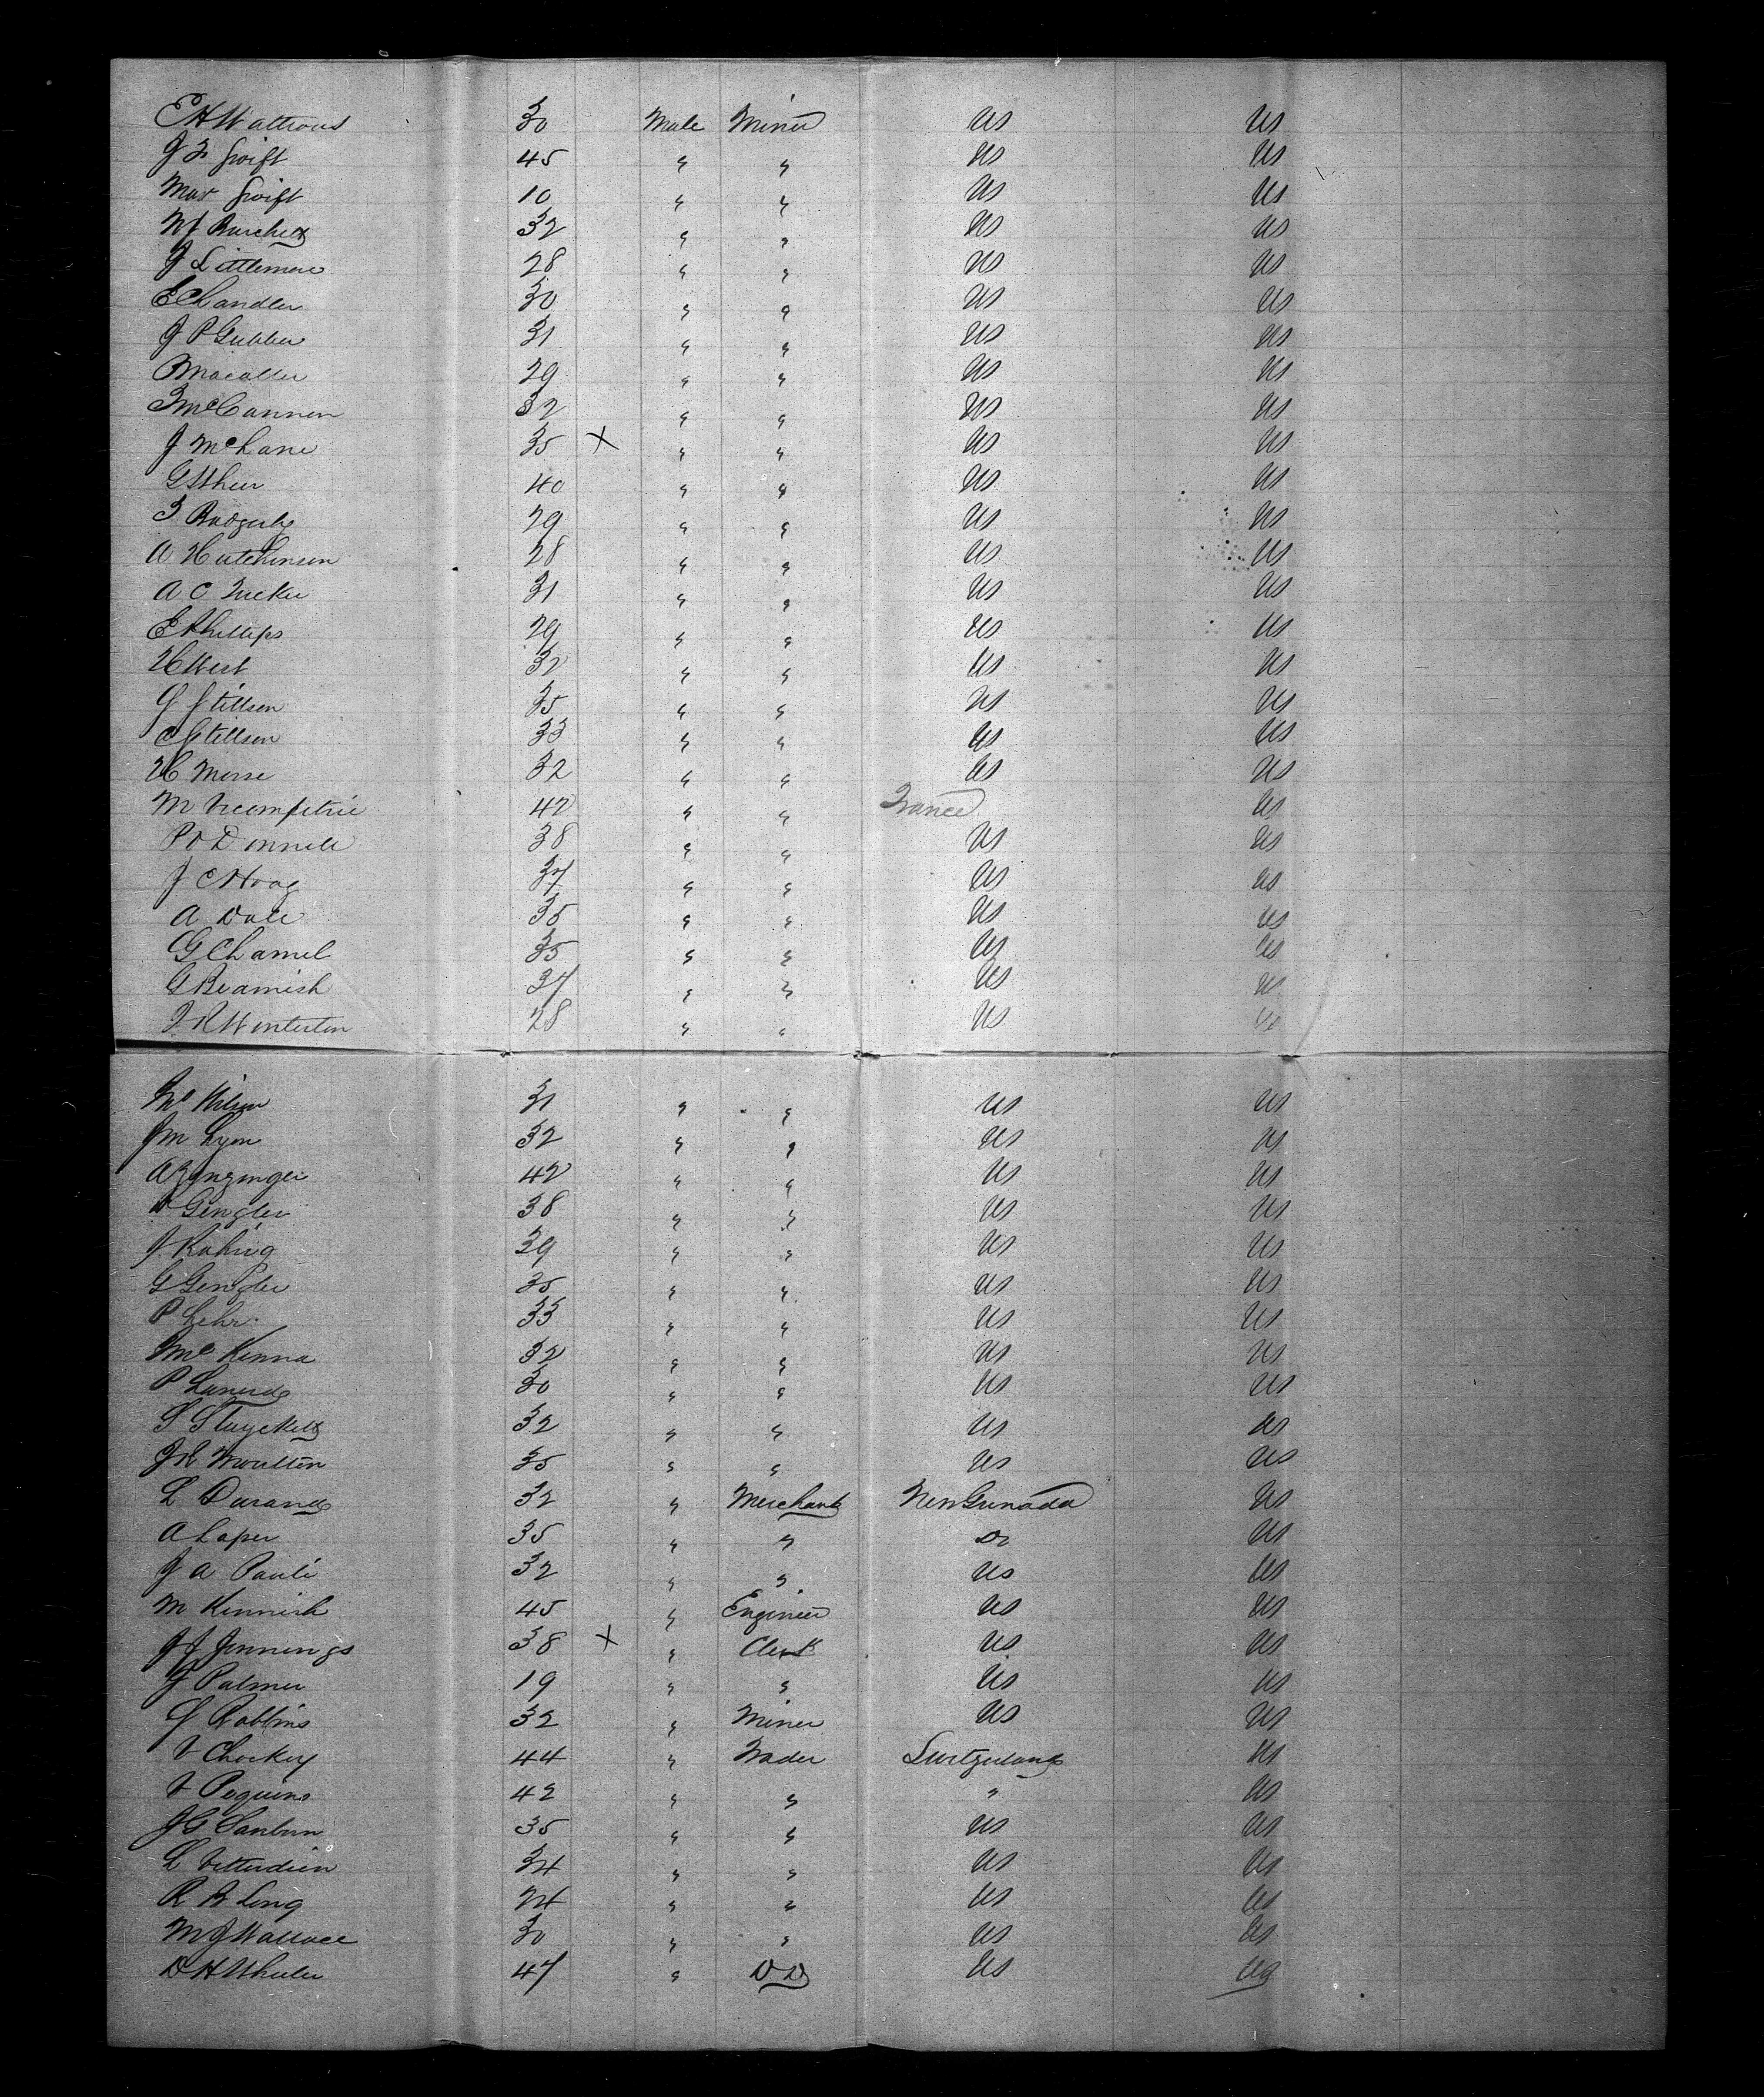 E H Wattrous 30 Male Miner US US
J F Swift 45 " " US US
Mas Swift 10 " " US US
W Burchett 32 " " US US
J Littlemore 28 " " US US
E Chandler 30 " " US US
J P Gubber 31 " " US US
29 " " US US
McCannon 32 " " US US
J McLane 35 X " " US US
40 " " US US
29 " " US US
A Hutchinson 28 " " US US
A C Tucker 31 " " US US
E Phillips 29 " " US US
H West 32 " " US US
G Stillson 35 " " US US
C Stillson 33 " " US US
H Morse 32 " " US US
M 42 " " France US
P O Donnell 38 " " US US
J C Hoag 37 " " US US
A Dole 35 " " US US
G Chamel 35 " " US US
G Beamish 37 " " US US
J R Winterton 28 " " US US
Wilson 31 " " US US
J M Lyon 32 " " US US
A Zanzinger 42 " " US US
Gengler 38 " " US US
J Rahrig 39 " " US US
G Gengler 35 " " US US
P Lehr 33 " " US US
McKenna 32 " " US US
P 30 " " US US
S Stuyckett 32 " " US US
J R Moulton 35 " " US US
L Durand 32 " Merchant New Grenada US
A Laper 35 " " Do US
J A Pauli 32 " " US US
M Kennish 45 " Engineer US US
J J Jennings 38 X " Clerk US US
J Palmer 19 " " US US
S Robbins 32 " Miner US US
V Chockey 44 " Trader Switzerland US
V Pequino 42 " " " US
J G Sanborn 35 " " US US
L 34 " " US US
R B Long 24 " " US US
M J Wallace 30 " " US US
D H Wheeler 47 " DD US US